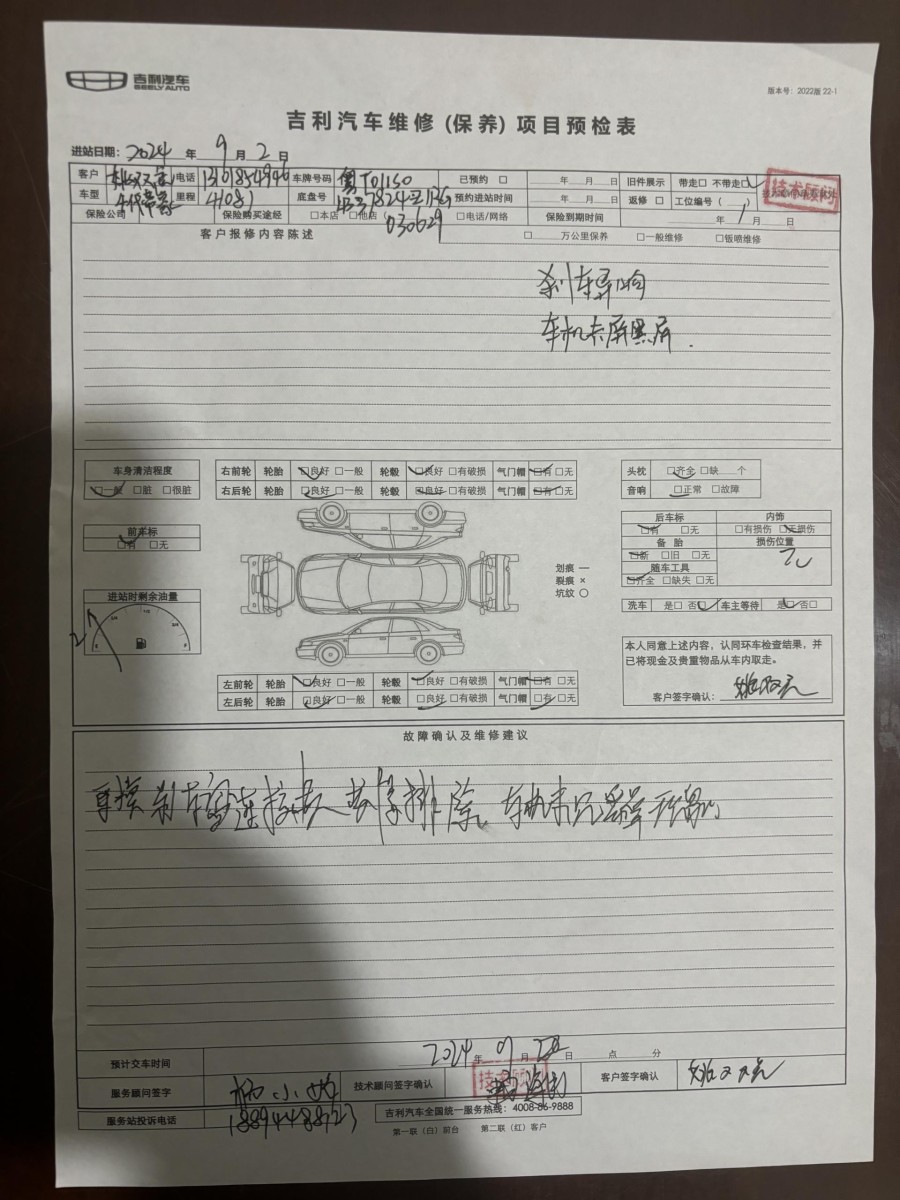 吉利汽车
GEELY AUTO
版本号：2022版 22-1
吉利汽车维修 (保养) 项目预检表
进站日期：2024 年 9 月 2 日
客户 电话 车牌号码 已预约 □ 年 月 日 旧件展示 带走□ 不带走□
技术顾问
车型 里程 41081 底盘号 预约进站时间 年 月 日 返修 □ 工位编号（ ）
保险公司 保险购买途经 □本店 □他店 030629 □电话/网络 保险到期时间 年 月 日
客户报修内容陈述 □ 万公里保养 □一般维修 □钣喷维修
刹车异响
车机卡屏黑屏.
车身清洁程度
□一般 □脏 □很脏
右前轮 轮胎 □良好 □一般 轮毂 □良好 □有破损 气门帽 □有 □无
右后轮 轮胎 □良好 □一般 轮毂 □良好 □有破损 气门帽 □有 □无
头枕 □齐全 □缺 个
音响 □正常 □故障
前车标
□有 □无
后车标 内饰
□有 □无 □有损伤 □无损伤
备 胎 损伤位置
□新 □旧 □无
随车工具
□齐全 □缺失 □无
划痕 —
裂痕 ×
坑纹 ○
进站时剩余油量
洗车 是□ 否□ 车主等待 是□ 否□
本人同意上述内容，认同环车检查结果，并
已将现金及贵重物品从车内取走。
客户签字确认：
左前轮 轮胎 □良好 □一般 轮毂 □良好 □有破损 气门帽 □有 □无
左后轮 轮胎 □良好 □一般 轮毂 □良好 □有破损 气门帽 □有 □无
故障确认及维修建议
预计交车时间 2024 年 9 月 日 点 分
服务顾问签字 技术顾问签字确认 技术顾问 客户签字确认
服务站投诉电话 18894488723 吉利汽车全国统一服务热线：4008-86-9888
第一联（白）前台 第二联（红）客户